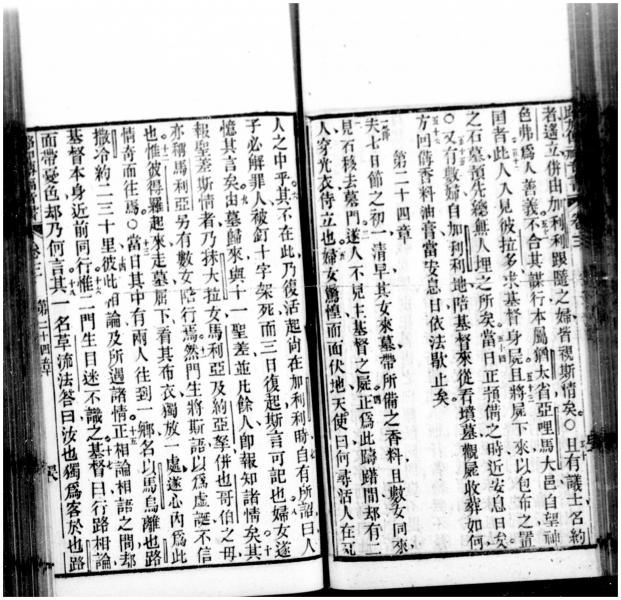 者遠立併由加利利跟隨之婦皆親斯情矣○且有議士名約
色弗爲人善義不合其謀行本屬猶太省亞哩馬大邑自望神
國者此人入見彼拉多求基督身屍且將屍下來以包布之置
之石墓預先總無人埋之所矣當日正預備之時近安息日矣
○又有數婦自加利利地陪基督來從看墳墓觀屍收葬如何
方回備香料油膏當安息日依法歇止矣
第二十四章
夫七日節之初一清早其女來墓帶所備之香料且數女同來
見石移去墓門遂入不見主基督之屍正爲此躊躇間却有二
人穿光衣侍立也婦女驚惶而面伏地天使曰何尋活人在死
人之中乎其不在此乃復活起尚在加利利時自有所詔曰人
子必解罪人被釘十字架死而三日復起斯言可記也婦女遂
憶其言矣由墓歸來與十一聖差並凡餘人卽報知諸情矣其
報聖差斯情者乃抹大拉女馬利亞及約亞拏併也哥伯之母
亦稱馬利亞另有數女陪行焉然門生將斯語以爲虛誕不信
也惟彼得羅起來走墓屈下看其布衣獨放一處遂心內爲此
情奇而往焉○當日其中有兩人往到一鄉名以馬烏離也路
撒冷約二三十里彼此相論及所遇諸情正相論相語之間却
基督本身近前同行惟二門生目迷不識之基督曰行路相論
而帶憂色却乃何言其一名草流法答曰汝也獨爲客於也路
卷三 第二十四章